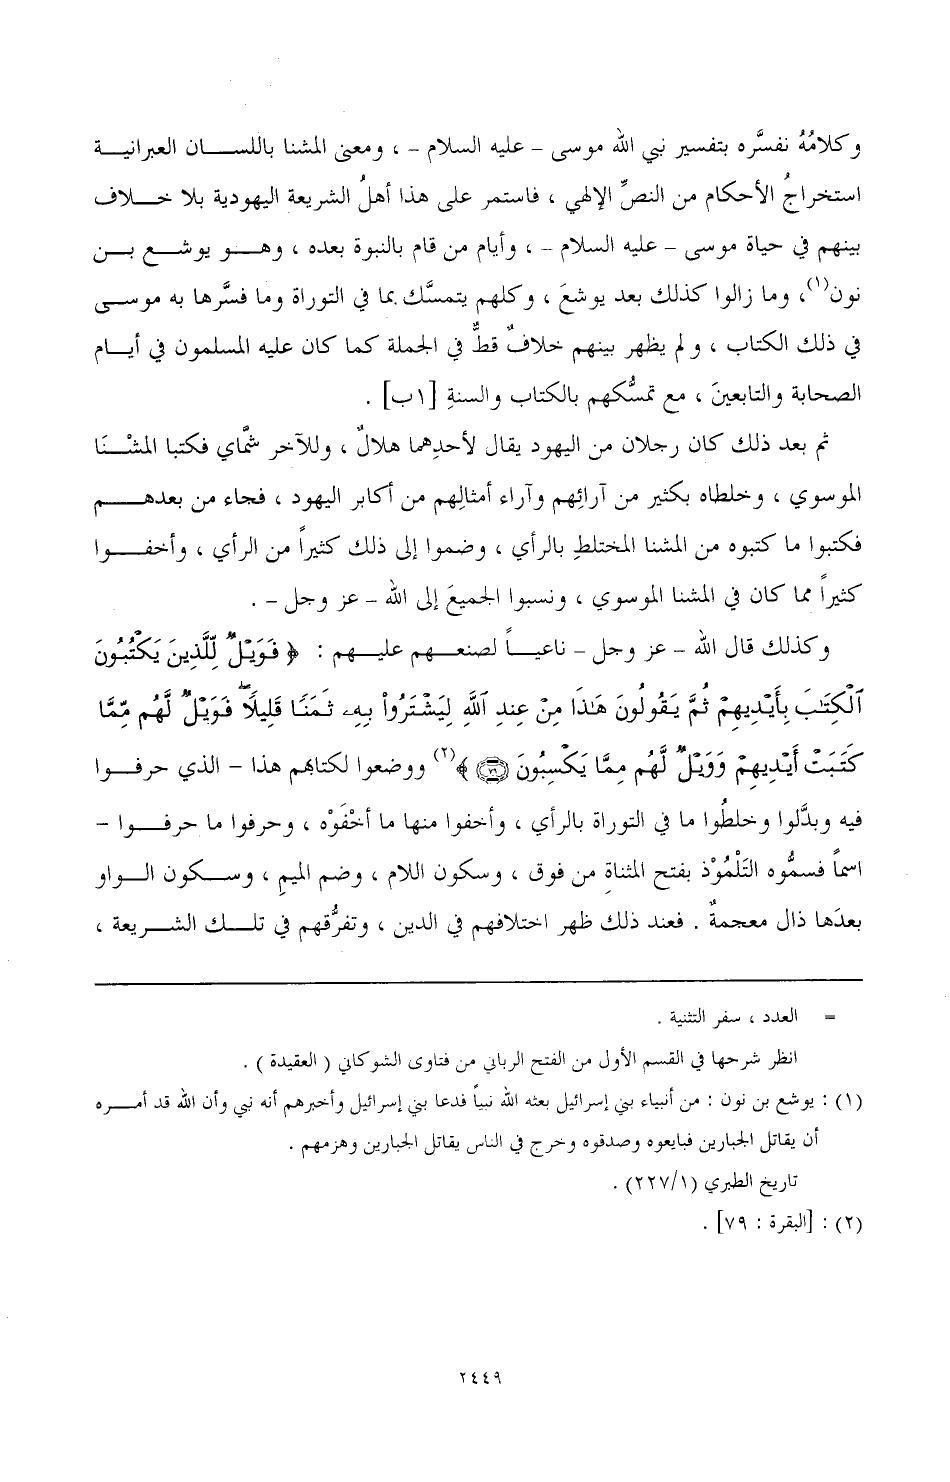 وكلامُهُ نفسَّره بتفسير نبي الله موسى – عليه السلام – ، ومعنى المشنا باللسان العبرانية
استخراجُ الأحكام من النصِّ الإلهي ، فاستمر على هذا أهلُ الشريعة اليهودية بلا خلاف
بينهم في حياة موسى – عليه السلام – ، وأيام من قام بالنبوة بعده ، وهو يوشع بن
نون(١)، وما زالوا كذلك بعد يوشعَ ، وكلهم يتمسَّك بما في التوراة وما فسَّرها به موسى
في ذلك الكتاب ، ولم يظهر بينهم خلافٌ قطُّ في الجملة كما كان عليه المسلمون في أيام
الصحابة والتابعينَ ، مع تمسُّكهم بالكتاب والسنةِ [١ب] .
ثم بعد ذلك كان رجلان من اليهود يقال لأحدِهما هلالٌ ، وللآخر شمَّاي فكتبا المشْنَا
الموسوي ، وخلطاه بكثير من آرائِهم وآراء أمثالِهم من أكابر اليهود ، فجاء من بعدهم
فكتبوا ما كتبوه من المشنا المختلطِ بالرأي ، وضموا إلى ذلك كثيراً من الرأي ، وأخفوا
كثيراً مما كان في المشنا الموسوي ، ونسبوا الجميعَ إلى الله – عز وجل – .
وكذلك قال الله – عز وجل – ناعياً لصنعهم عليهم : ﴿ فَوَيْلٌ لِّلَّذِينَ يَكْتُبُونَ
ٱلْكِتَٰبَ بِأَيْدِيهِمْ ثُمَّ يَقُولُونَ هَٰذَا مِنْ عِندِ ٱللَّهِ لِيَشْتَرُوا۟ بِهِۦ ثَمَنًا قَلِيلًا ۖ فَوَيْلٌ لَّهُم مِّمَّا
كَتَبَتْ أَيْدِيهِمْ وَوَيْلٌ لَّهُم مِّمَّا يَكْسِبُونَ ٧٩ ﴾(٢) ووضعوا لكتابهم هذا – الذي حرفوا
فيه وبدَّلوا وخلطُوا ما في التوراة بالرأي ، وأخفوا منها ما أخْفَوْه ، وحرفوا ما حرفوا –
اسماً فسمُّوه التَلْمُوْذ بفتح المثناةِ من فوق ، وسكون اللام ، وضم الميمِ ، وسكون الواو
بعدَها ذال معجمةٌ . فعند ذلك ظهر اختلافهم في الدين ، وتفرُّقهم في تلك الشريعة ،
= العدد ، سفر التثنية .
انظر شرحها في القسم الأول من الفتح الرباني من فتاوى الشوكاني ( العقيدة ) .
(١) : يوشع بن نون : من أنبياء بني إسرائيل بعثه الله نبياً فدعا بني إسرائيل وأخبرهم أنه نبي وأن الله قد أمره
أن يقاتل الجبارين فبايعوه وصدقوه وخرج في الناس يقاتل الجبارين وهزمهم .
تاريخ الطبري (٢٢٧/١) .
(٢) : [البقرة : ٧٩] .
٢٤٤٩